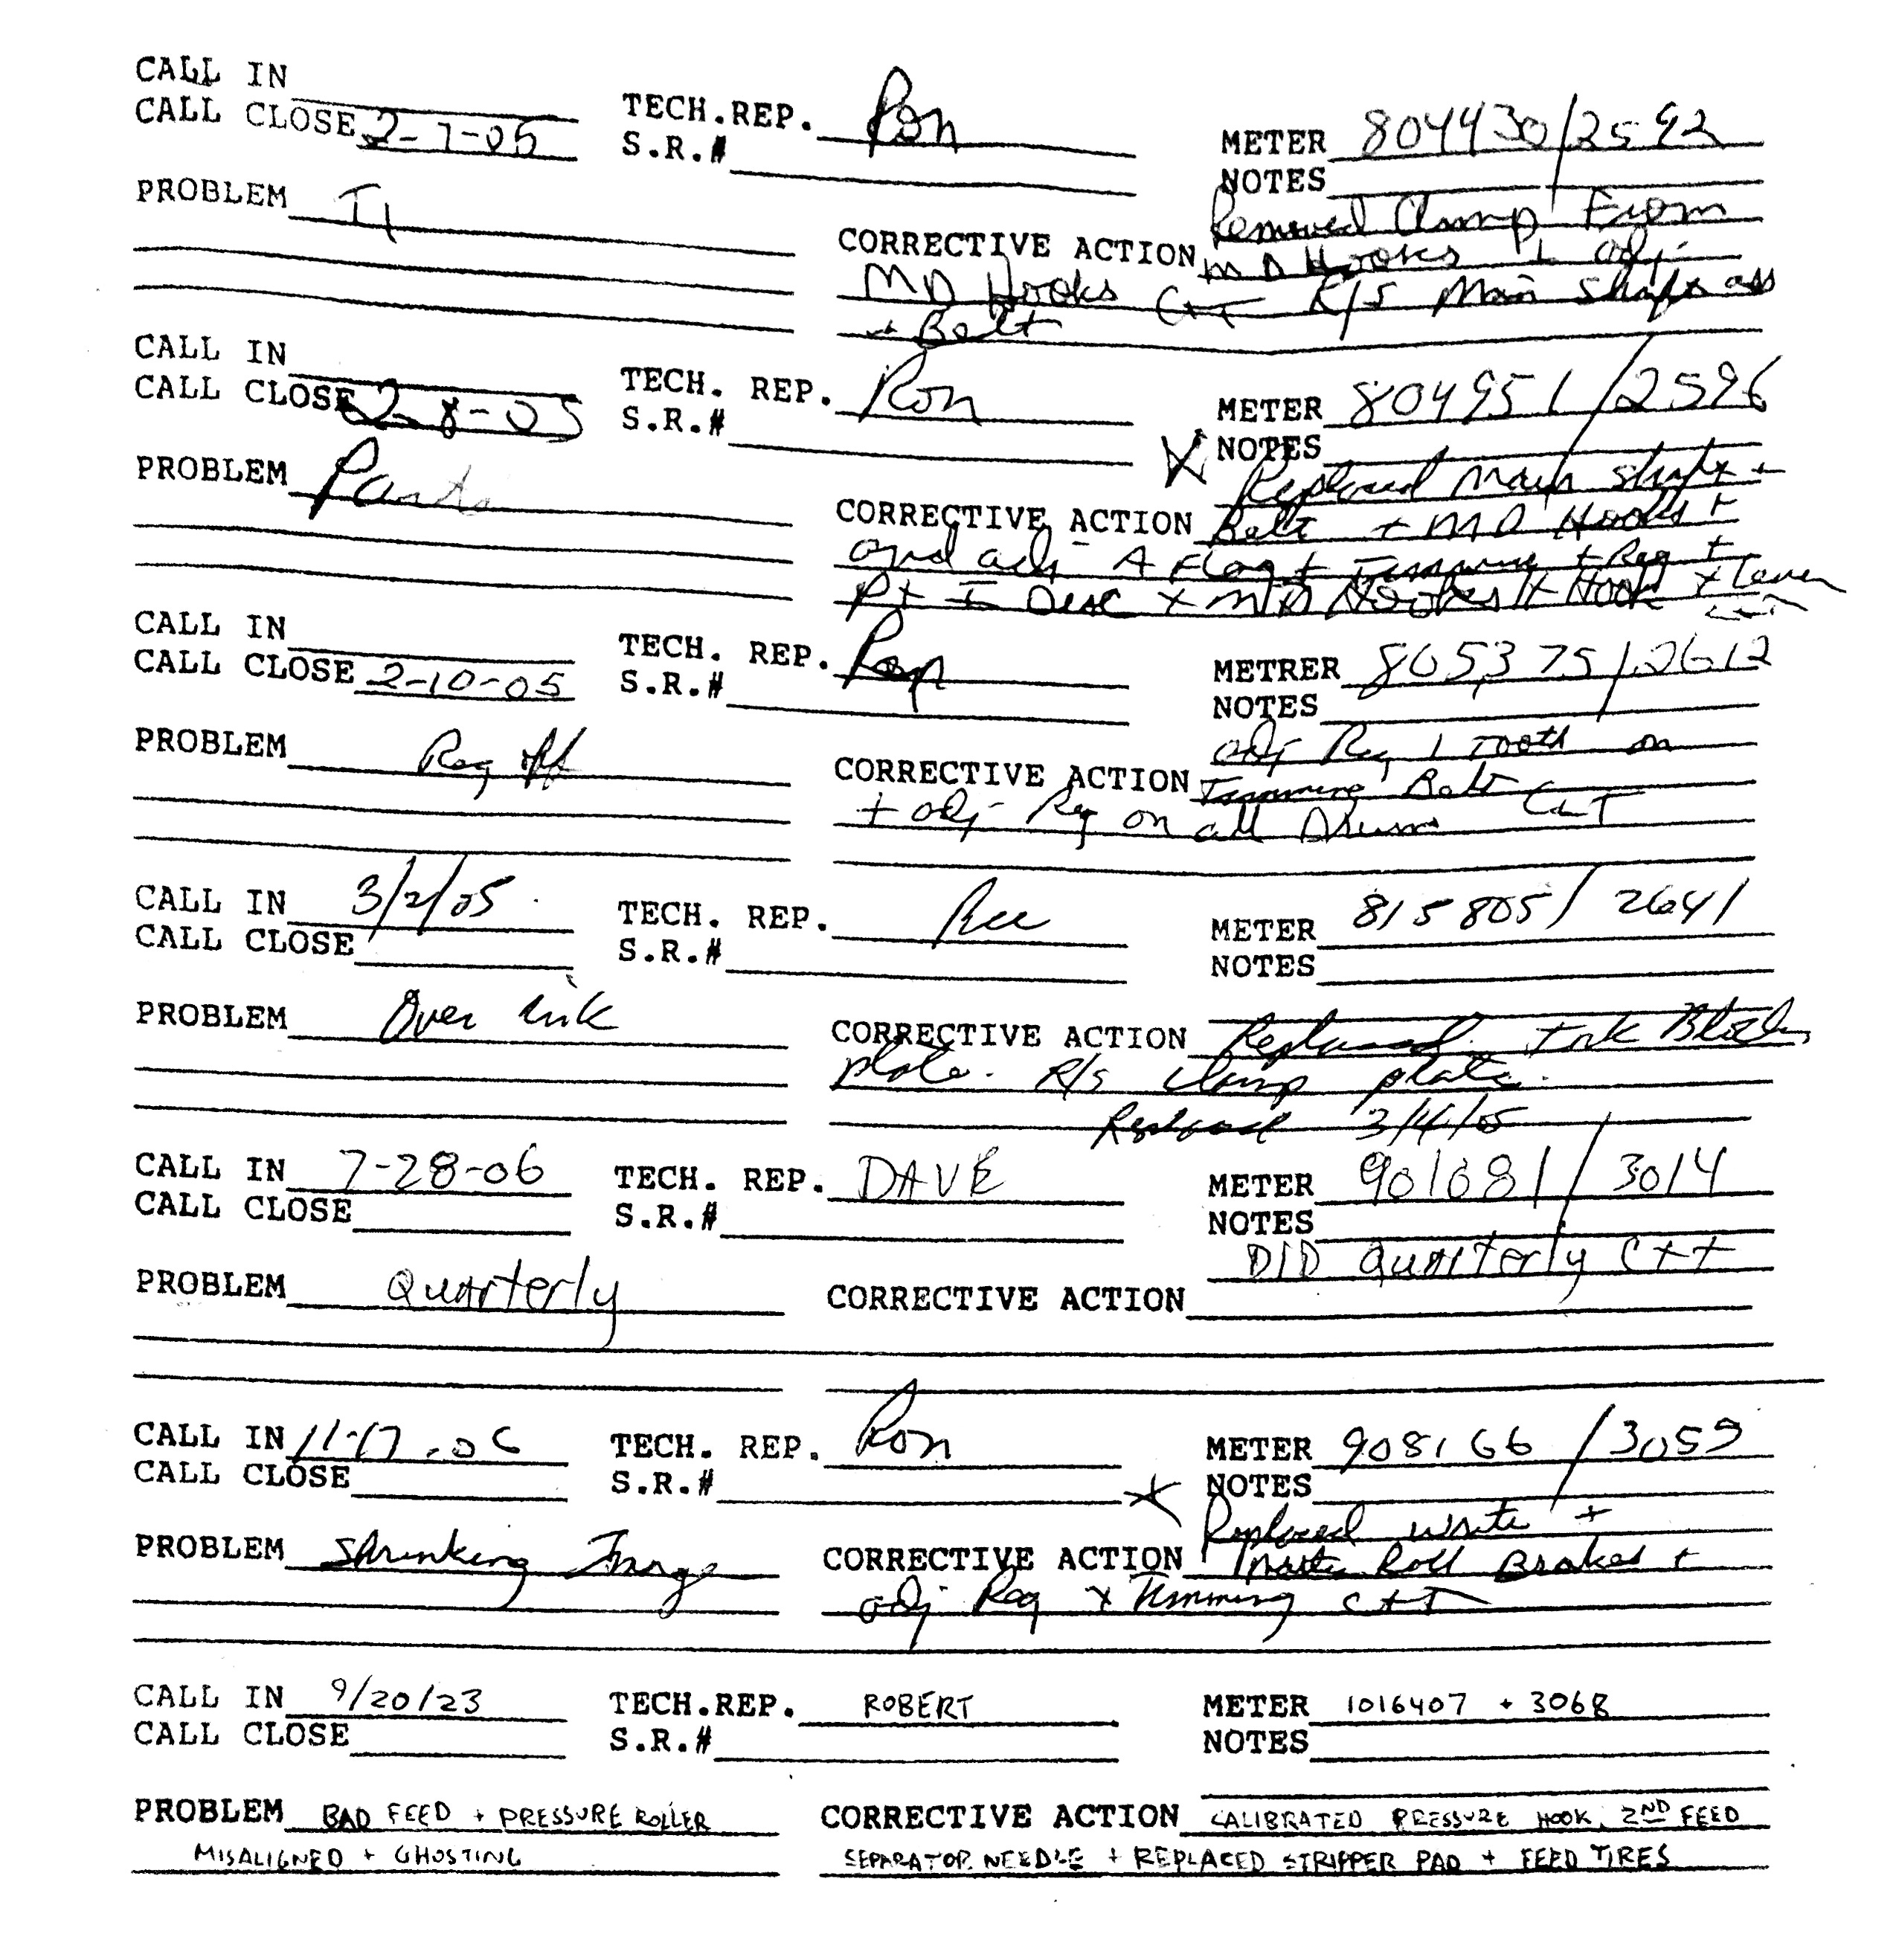 CALL IN
CALL CLOSE 2-7-05 TECH.REP. Ron METER 804430/2592
S.R.# NOTES
PROBLEM T1 Removed Clamp From
CORRECTIVE ACTION MD Hooks adj
MD Hooks C+T R/S Main Shaft ass
+ Belt
CALL IN
CALL CLOSE 2-8-05 TECH. REP. Ron METER 804951/2596
S.R.# NOTES
PROBLEM Parts Replaced main shaft +
CORRECTIVE ACTION Belt + MD Hooks +
and adj A Flag + Timming + Reg +
Disc + MD Hooks Hook + Lever
CALL IN
CALL CLOSE 2-10-05 TECH. REP. Ron METRER 805375/2612
S.R.# NOTES
PROBLEM Reg off adj Reg 1 Tooth on
CORRECTIVE ACTION Timming Belt C+T
+ adj Reg on all Drums
CALL IN 3/2/05 TECH. REP. METER 815805/2641
CALL CLOSE S.R.# NOTES
PROBLEM Over ink CORRECTIVE ACTION Replaced Ink Block
plate. R/S clamp plate.
Replaced 3/4/05
CALL IN 7-28-06 TECH. REP. DAVE METER 901081/3014
CALL CLOSE S.R.# NOTES
DID Quarterly C++
PROBLEM Quarterly CORRECTIVE ACTION
CALL IN 11-17-06 TECH. REP. Ron METER 908166/3059
CALL CLOSE S.R.# NOTES
Replaced write +
PROBLEM Shrinking Image CORRECTIVE ACTION Master Roll Brakes +
adj Reg + Timming C+T
CALL IN 9/20/23 TECH.REP. ROBERT METER 1016407 + 3068
CALL CLOSE S.R.# NOTES
PROBLEM BAD FEED + PRESSURE ROLLER CORRECTIVE ACTION CALIBRATED PRESSURE HOOK, 2ND FEED
MISALIGNED + GHOSTING SEPARATOR NEEDLE + REPLACED STRIPPER PAD + FEED TIRES